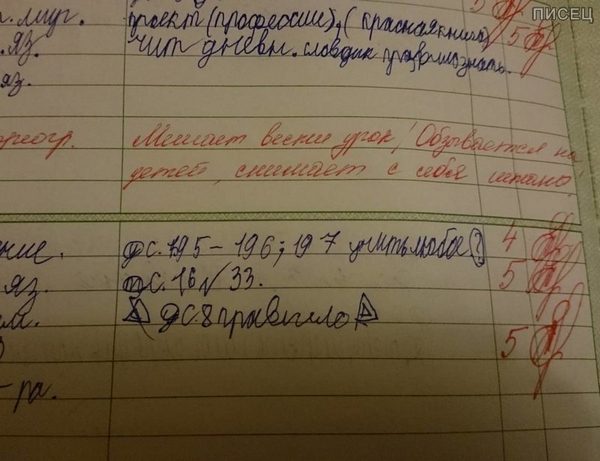 ПИСЕЦ
т. мир. проект (профессии), (красная книга) 5
.яз. чит дневн. словарик правила знать. 5
яз.
Мешает вести урок! Обзывается на
детей, снимает с себя штаны.
ние. с. 195-196; 197 учить любое 4
яз. с. 16 № 33. 5
м. с 8 правило 5
-ра.